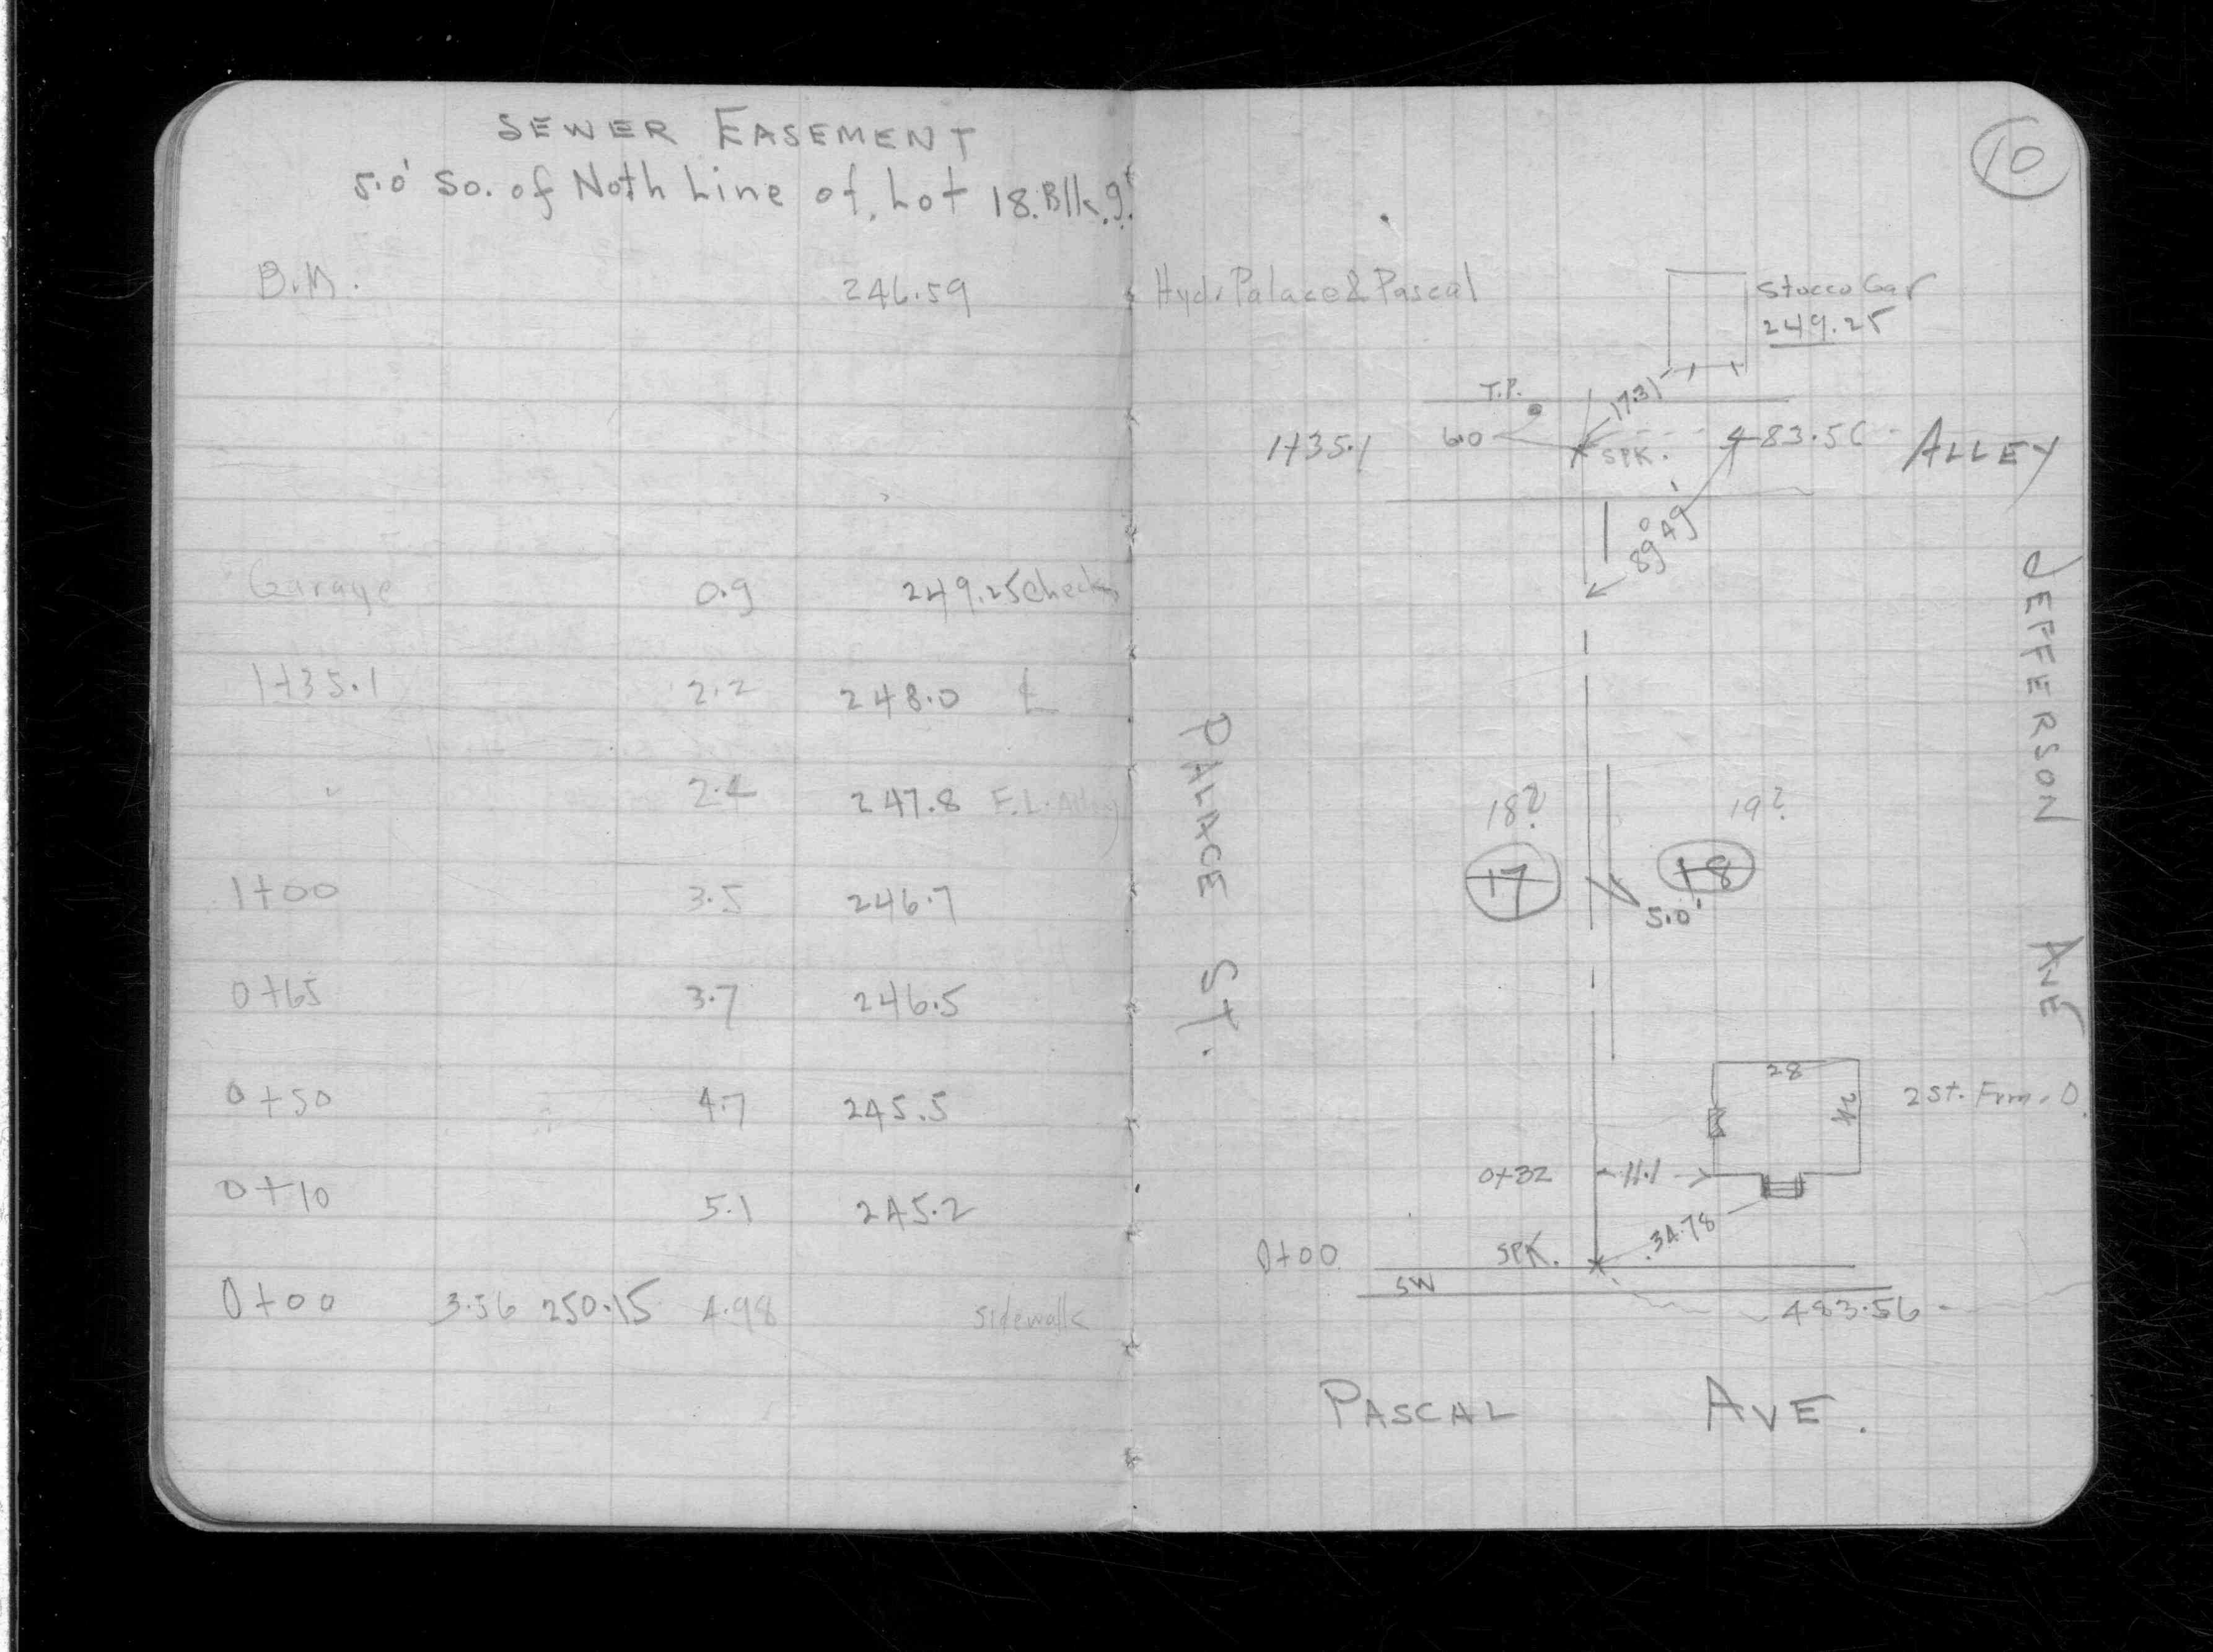 SEWER EASEMENT
5.0' So. of Noth Line of Lot 18. Blk. 9.
B.M. 246.59
Garage 0.9 249.25 Checks
1+35.1 2.2 248.0 ℄
" 2.4 247.8 E.L. Alley
1+00 3.5 246.7
0+65 3.7 246.5
0+50 4.7 245.5
0+10 5.1 245.2
0+00 3.56 250.15 4.98 Sidewalk
10
Hyd. Palace & Pascal
Stucco Gar
249.25
T.P.
17.31
1+35.1 6.0 SPK. 483.56 ALLEY
89° 49'
JEFFERSON AVE
PALACE ST.
18? 19?
17 18
5.0'
28
24
2 St. Frm. D.
0+32 11.1
34.78
0+00 SPK.
SW
483.56
PASCAL AVE.